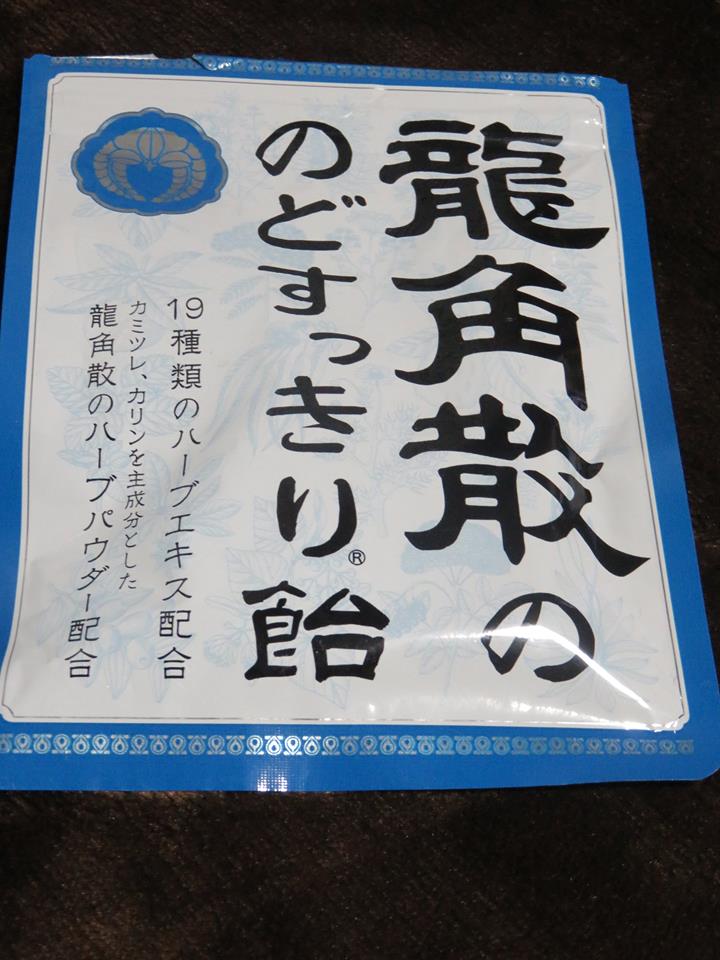 龍角散の
のどすっきり®飴
19種類のハーブエキス配合
カミツレ、カリンを主成分とした
龍角散のハーブパウダー配合